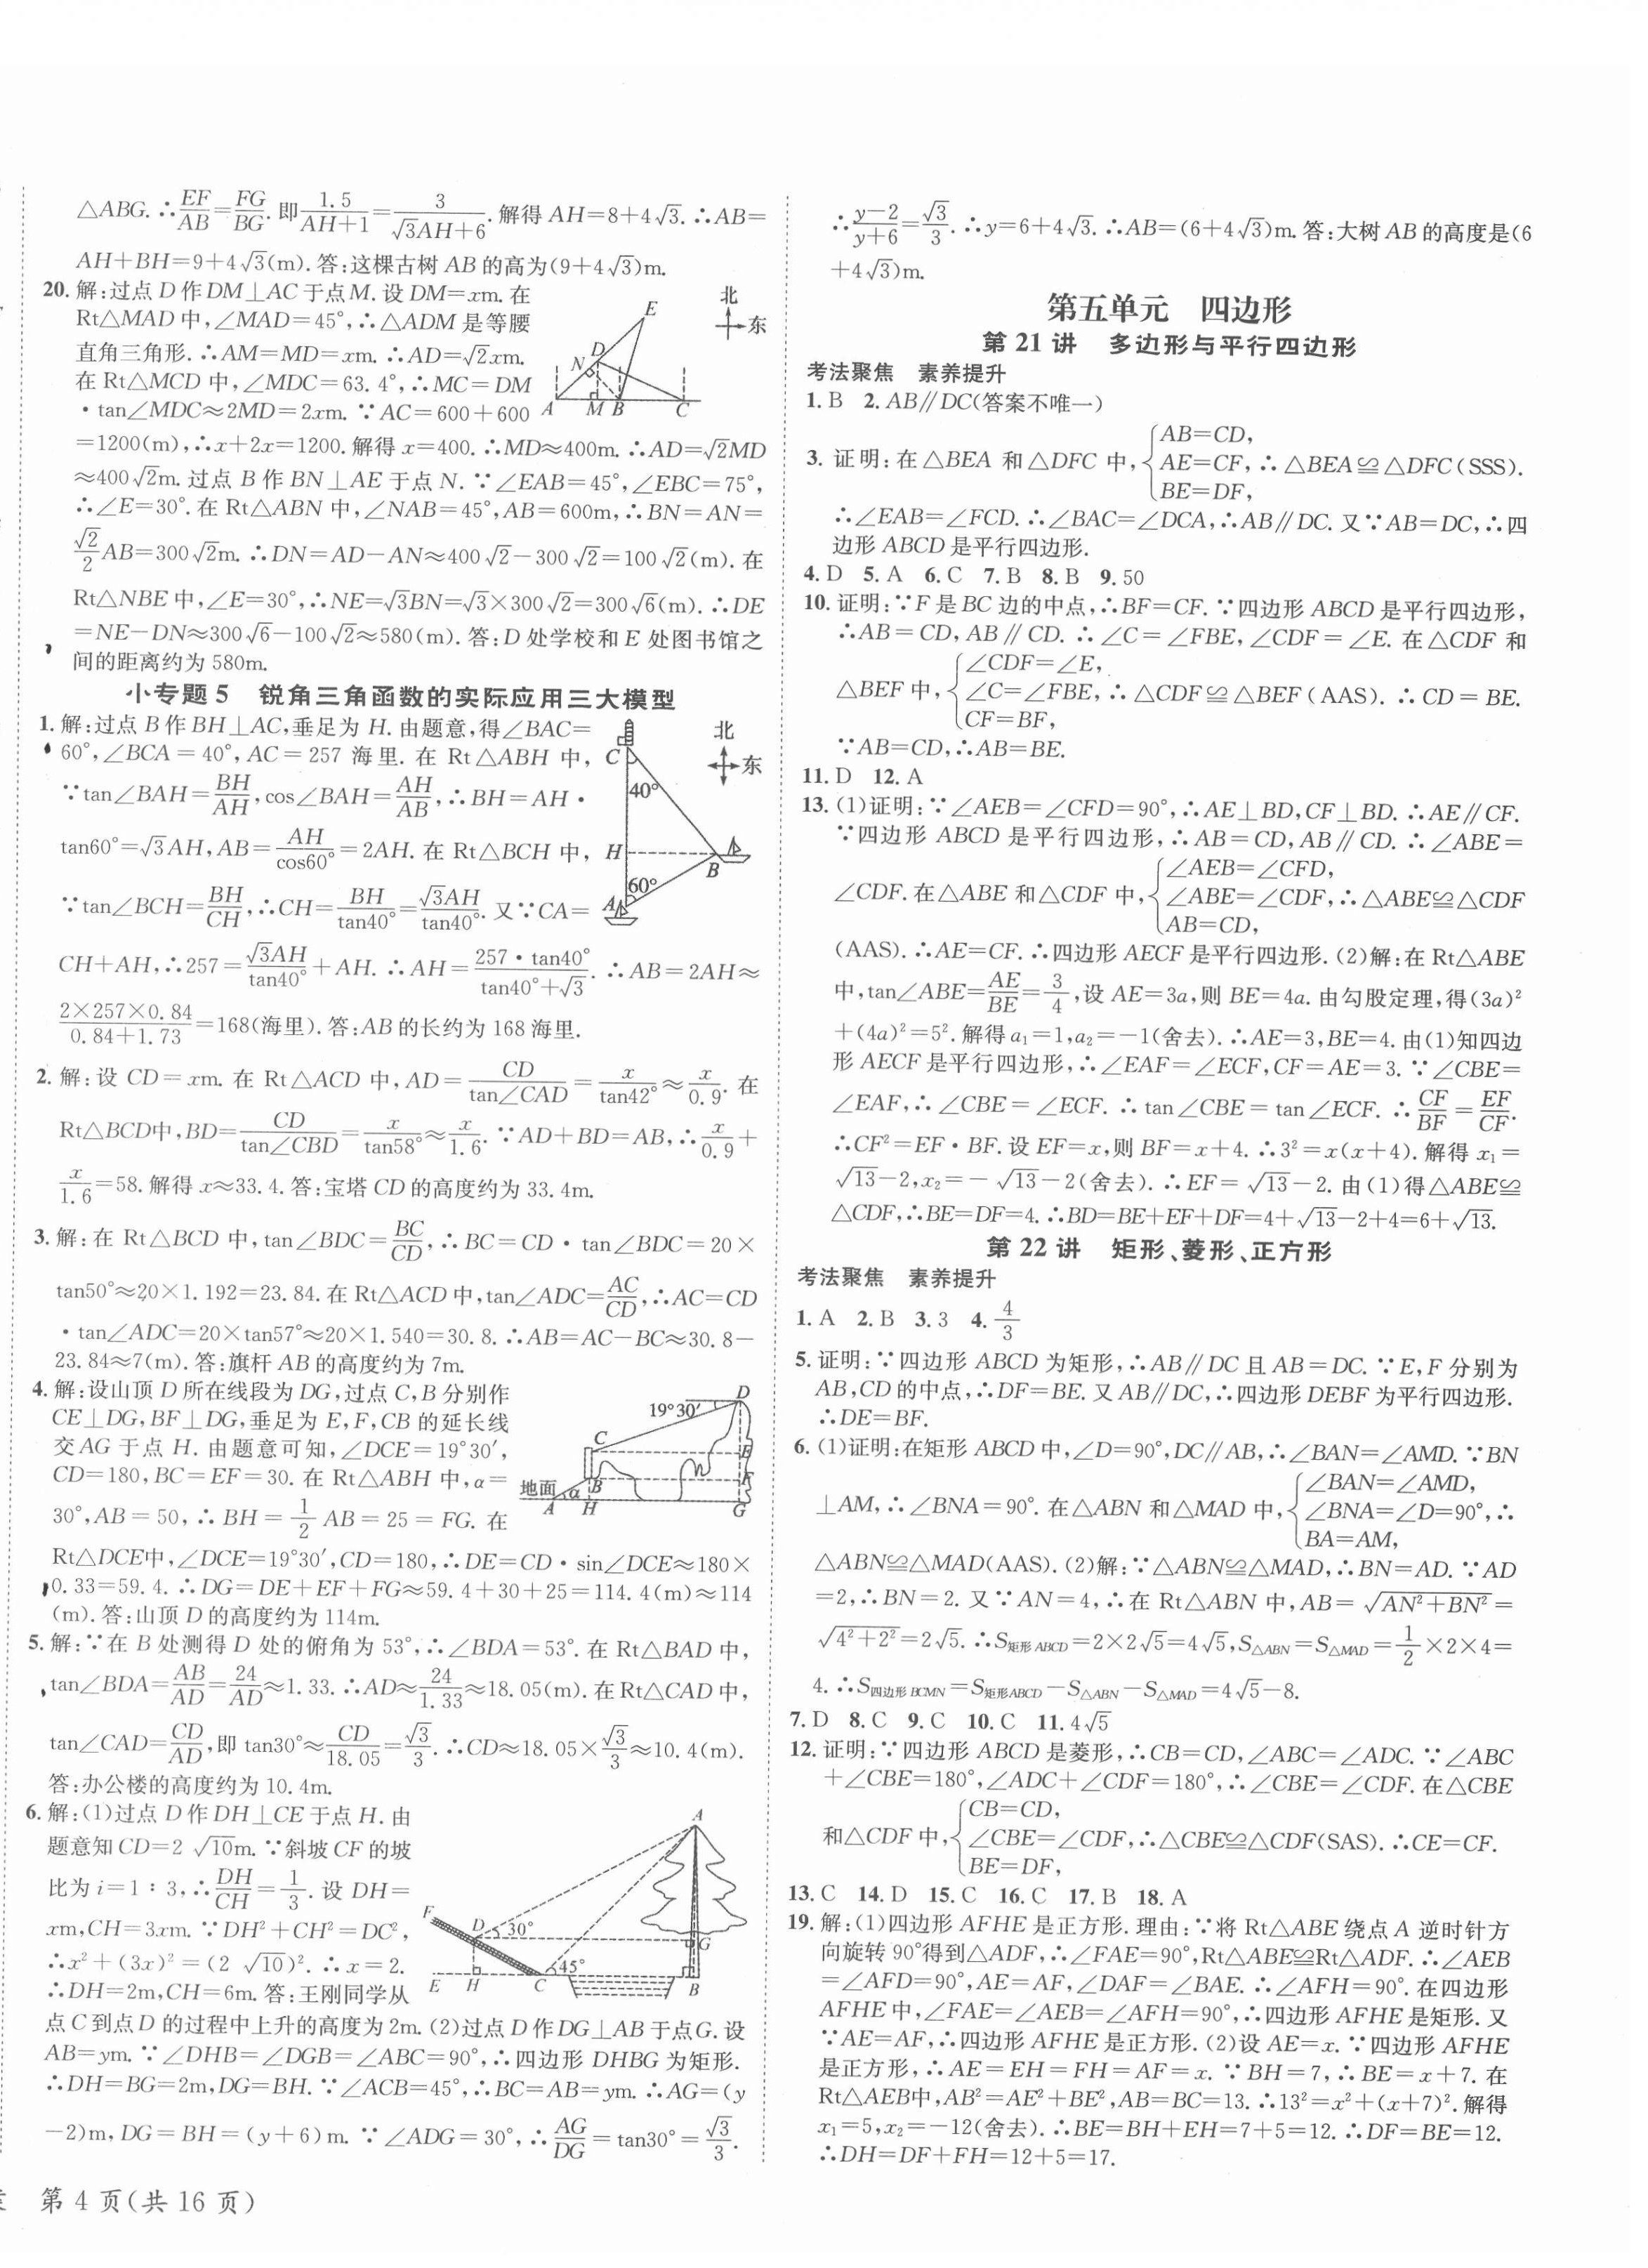 △ABG. ∴EF/AB=FG/BG. 即1.5/(AH+1)=3/(√3AH+6). 解得 AH=8+4√3. ∴AB=
AH+BH=9+4√3(m). 答:这棵古树 AB 的高为(9+4√3)m.
20. 解:过点 D 作 DM⊥AC 于点 M. 设 DM=xm. 在
Rt△MAD 中,∠MAD=45°,∴△ADM 是等腰
直角三角形. ∴AM=MD=xm. ∴AD=√2xm.
在 Rt△MCD 中,∠MDC=63.4°,∴MC=DM
·tan∠MDC≈2MD=2xm. ∵AC=600+600
=1200(m),∴x+2x=1200. 解得 x=400. ∴MD≈400m. ∴AD=√2MD
≈400√2m. 过点 B 作 BN⊥AE 于点 N. ∵∠EAB=45°,∠EBC=75°,
∴∠E=30°. 在 Rt△ABN 中,∠NAB=45°,AB=600m,∴BN=AN=
√2/2AB=300√2m. ∴DN=AD-AN≈400√2-300√2=100√2(m). 在
Rt△NBE 中,∠E=30°,∴NE=√3BN=√3×300√2=300√6(m). ∴DE
=NE-DN≈300√6-100√2≈580(m). 答:D 处学校和 E 处图书馆之
间的距离约为 580m.
北
东
E
D
N
A M B C
小专题 5 锐角三角函数的实际应用三大模型
1. 解:过点 B 作 BH⊥AC,垂足为 H. 由题意,得∠BAC=
60°,∠BCA=40°,AC=257 海里. 在 Rt△ABH 中,
∵tan∠BAH=BH/AH,cos∠BAH=AH/AB,∴BH=AH·
tan60°=√3AH,AB=AH/cos60°=2AH. 在 Rt△BCH 中,
∵tan∠BCH=BH/CH,∴CH=BH/tan40°=√3AH/tan40°. 又∵CA=
CH+AH,∴257=√3AH/tan40°+AH. ∴AH=257·tan40°/(tan40°+√3). ∴AB=2AH≈
(2×257×0.84)/(0.84+1.73)=168(海里). 答:AB 的长约为 168 海里.
北
东
C
40°
H
B
60°
A
2. 解:设 CD=xm. 在 Rt△ACD 中,AD=CD/tan∠CAD=x/tan42°≈x/0.9. 在
Rt△BCD中,BD=CD/tan∠CBD=x/tan58°≈x/1.6. ∵AD+BD=AB,∴x/0.9+
x/1.6=58. 解得 x≈33.4. 答:宝塔 CD 的高度约为 33.4m.
3. 解:在 Rt△BCD 中,tan∠BDC=BC/CD,∴BC=CD·tan∠BDC=20×
tan50°≈20×1.192=23.84. 在 Rt△ACD 中,tan∠ADC=AC/CD,∴AC=CD
·tan∠ADC=20×tan57°≈20×1.540=30.8. ∴AB=AC-BC≈30.8-
23.84≈7(m). 答:旗杆 AB 的高度约为 7m.
4. 解:设山顶 D 所在线段为 DG,过点 C,B 分别作
CE⊥DG,BF⊥DG,垂足为 E,F,CB 的延长线
交 AG 于点 H. 由题意可知,∠DCE=19°30′,
CD=180,BC=EF=30. 在 Rt△ABH 中,α=
30°,AB=50,∴BH=1/2AB=25=FG. 在
Rt△DCE中,∠DCE=19°30′,CD=180,∴DE=CD·sin∠DCE≈180×
0.33=59.4. ∴DG=DE+EF+FG≈59.4+30+25=114.4(m)≈114
(m). 答:山顶 D 的高度约为 114m.
D
19°30′
C
E
B
F
地面
α
A H G
5. 解:∵在 B 处测得 D 处的俯角为 53°,∴∠BDA=53°. 在 Rt△BAD 中,
tan∠BDA=AB/AD=24/AD≈1.33. ∴AD≈24/1.33≈18.05(m). 在 Rt△CAD 中,
tan∠CAD=CD/AD,即 tan30°≈CD/18.05=√3/3. ∴CD≈18.05×√3/3≈10.4(m).
答:办公楼的高度约为 10.4m.
6. 解:(1)过点 D 作 DH⊥CE 于点 H. 由
题意知 CD=2√10m. ∵斜坡 CF 的坡
比为 i=1:3,∴DH/CH=1/3. 设 DH=
xm,CH=3xm. ∵DH²+CH²=DC²,
∴x²+(3x)²=(2√10)². ∴x=2.
∴DH=2m,CH=6m. 答:王刚同学从
点 C 到点 D 的过程中上升的高度为 2m. (2)过点 D 作 DG⊥AB 于点 G. 设
AB=ym. ∵∠DHB=∠DGB=∠ABC=90°,∴四边形 DHBG 为矩形.
∴DH=BG=2m,DG=BH. ∵∠ACB=45°,∴BC=AB=ym. ∴AG=(y
-2)m,DG=BH=(y+6)m. ∵∠ADG=30°,∴AG/DG=tan30°=√3/3.
A
F
D
30°
G
45°
E H C B
第 4 页(共 16 页)
∴(y-2)/(y+6)=√3/3. ∴y=6+4√3. ∴AB=(6+4√3)m. 答:大树 AB 的高度是(6
+4√3)m.
第五单元 四边形
第 21 讲 多边形与平行四边形
考法聚焦 素养提升
1. B 2. AB∥DC(答案不唯一)
3. 证明:在△BEA 和△DFC 中,{AB=CD, AE=CF, BE=DF, ∴△BEA≌△DFC(SSS).
∴∠EAB=∠FCD. ∴∠BAC=∠DCA,∴AB∥DC. 又∵AB=DC,∴四
边形 ABCD 是平行四边形.
4. D 5. A 6. C 7. B 8. B 9. 50
10. 证明:∵F 是 BC 边的中点,∴BF=CF. ∵四边形 ABCD 是平行四边形,
∴AB=CD,AB∥CD. ∴∠C=∠FBE,∠CDF=∠E. 在△CDF 和
△BEF 中,{∠CDF=∠E, ∠C=∠FBE, CF=BF, ∴△CDF≌△BEF(AAS). ∴CD=BE.
∵AB=CD,∴AB=BE.
11. D 12. A
13. (1)证明:∵∠AEB=∠CFD=90°,∴AE⊥BD,CF⊥BD. ∴AE∥CF.
∵四边形 ABCD 是平行四边形,∴AB=CD,AB∥CD. ∴∠ABE=
∠CDF. 在△ABE 和△CDF 中,{∠AEB=∠CFD, ∠ABE=∠CDF, AB=CD, ∴△ABE≌△CDF
(AAS). ∴AE=CF. ∴四边形 AECF 是平行四边形. (2)解:在 Rt△ABE
中,tan∠ABE=AE/BE=3/4,设 AE=3a,则 BE=4a. 由勾股定理,得(3a)²
+(4a)²=5². 解得 a₁=1,a₂=-1(舍去). ∴AE=3,BE=4. 由(1)知四边
形 AECF 是平行四边形,∴∠EAF=∠ECF,CF=AE=3. ∵∠CBE=
∠EAF,∴∠CBE=∠ECF. ∴tan∠CBE=tan∠ECF. ∴CF/BF=EF/CF.
∴CF²=EF·BF. 设 EF=x,则 BF=x+4. ∴3²=x(x+4). 解得 x₁=
√13-2,x₂=-√13-2(舍去). ∴EF=√13-2. 由(1)得△ABE≌
△CDF,∴BE=DF=4. ∴BD=BE+EF+DF=4+√13-2+4=6+√13.
第 22 讲 矩形、菱形、正方形
考法聚焦 素养提升
1. A 2. B 3. 3 4. 4/3
5. 证明:∵四边形 ABCD 为矩形,∴AB∥DC 且 AB=DC. ∵E,F 分别为
AB,CD 的中点,∴DF=BE. 又 AB∥DC,∴四边形 DEBF 为平行四边形.
∴DE=BF.
6. (1)证明:在矩形 ABCD 中,∠D=90°,DC∥AB,∴∠BAN=∠AMD. ∵BN
⊥AM,∴∠BNA=90°. 在△ABN 和△MAD 中,{∠BAN=∠AMD, ∠BNA=∠D=90°, BA=AM, ∴
△ABN≌△MAD(AAS). (2)解:∵△ABN≌△MAD,∴BN=AD. ∵AD
=2,∴BN=2. 又∵AN=4,∴在 Rt△ABN 中,AB=√(AN²+BN²)=
√(4²+2²)=2√5. ∴S矩形ABCD=2×2√5=4√5,S△ABN=S△MAD=1/2×2×4=
4. ∴S四边形BCMN=S矩形ABCD-S△ABN-S△MAD=4√5-8.
7. D 8. C 9. C 10. C 11. 4√5
12. 证明:∵四边形 ABCD 是菱形,∴CB=CD,∠ABC=∠ADC. ∵∠ABC
+∠CBE=180°,∠ADC+∠CDF=180°,∴∠CBE=∠CDF. 在△CBE
和△CDF 中,{CB=CD, ∠CBE=∠CDF, BE=DF, ∴△CBE≌△CDF(SAS). ∴CE=CF.
13. C 14. D 15. C 16. C 17. B 18. A
19. 解:(1)四边形 AFHE 是正方形. 理由:∵将 Rt△ABE 绕点 A 逆时针方
向旋转 90°得到△ADF,∴∠FAE=90°,Rt△ABE≌Rt△ADF. ∴∠AEB
=∠AFD=90°,AE=AF,∠DAF=∠BAE. ∴∠AFH=90°. 在四边形
AFHE 中,∠FAE=∠AEB=∠AFH=90°,∴四边形 AFHE 是矩形. 又
∵AE=AF,∴四边形 AFHE 是正方形. (2)设 AE=x. ∵四边形 AFHE
是正方形,∴AE=EH=FH=AF=x. ∵BH=7,∴BE=x+7. 在
Rt△AEB中,AB²=AE²+BE²,AB=BC=13. ∴13²=x²+(x+7)². 解得
x₁=5,x₂=-12(舍去). ∴BE=BH+EH=7+5=12. ∴DF=BE=12.
∴DH=DF+FH=12+5=17.